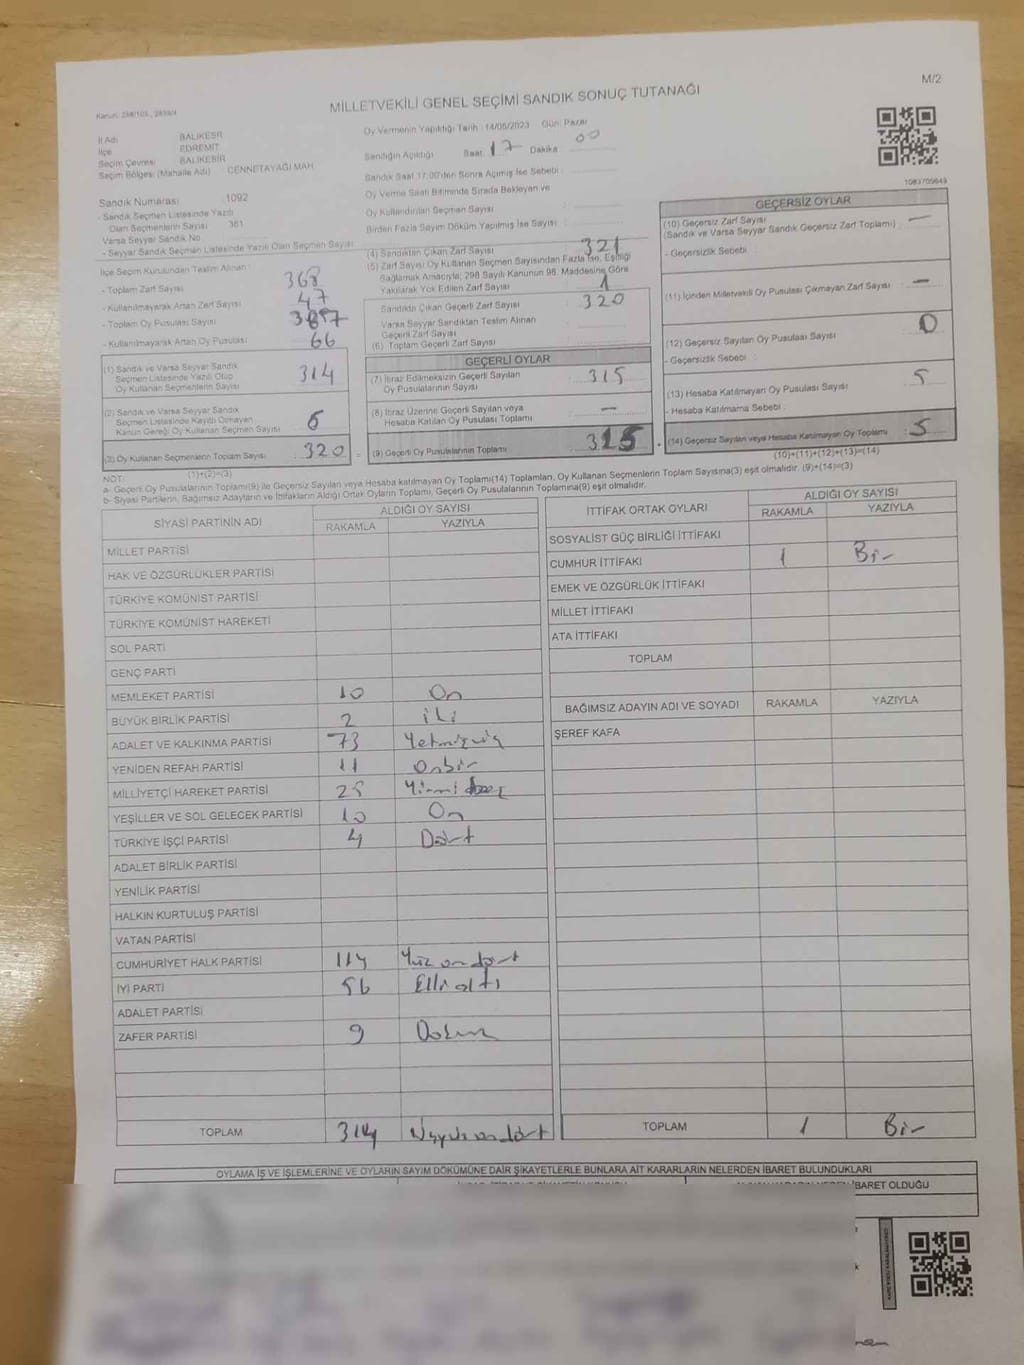 M/2
MİLLETVEKİLİ GENEL SEÇİMİ SANDIK SONUÇ TUTANAĞI
İl Adı BALIKESİR
İlçe EDREMİT
Seçim Çevresi BALIKESİR
Seçim Bölgesi (Mahalle Adı) : CENNETAYAĞI MAH
Oy Vermenin Yapıldığı Tarih : 14/05/2023 Gün: Pazar
Sandığın Açıldığı Saat: 17 Dakika 00
Sandık Saat 17:00'den Sonra Açılmış İse Sebebi :
Oy Verme Saati Bitiminde Sırada Bekleyen ve
Oy Kullandırılan Seçmen Sayısı
Birden Fazla Sayım Döküm Yapılmış İse Sayısı :
1083705649
Sandık Numarası 1092
- Sandık Seçmen Listesinde Yazılı
Olan Seçmenlerin Sayısı 361
Varsa Seyyar Sandık No
- Seyyar Sandık Seçmen Listesinde Yazılı Olan Seçmen Sayısı
İlçe Seçim Kurulundan Teslim Alınan :
- Toplam Zarf Sayısı 368
- Kullanılmayarak Artan Zarf Sayısı 47
- Toplam Oy Pusulası Sayısı
- Kullanılmayarak Artan Oy Pusulası 66
(1) Sandık ve Varsa Seyyar Sandık
Seçmen Listesinde Yazılı Olup
Oy Kullanan Seçmenlerin Sayısı 314
(2) Sandık ve Varsa Seyyar Sandık
Seçmen Listesinde Kayıtlı Olmayan
Kanun Gereği Oy Kullanan Seçmen Sayısı 6
(3) Oy Kullanan Seçmenlerin Toplam Sayısı 320
(1)+(2)=(3)
(4) Sandıktan Çıkan Zarf Sayısı 321
(5) Zarf Sayısı Oy Kullanan Seçmen Sayısından Fazla İse, Eşitliği
Sağlamak Amacıyla, 298 Sayılı Kanunun 98. Maddesine Göre
Yakılarak Yok Edilen Zarf Sayısı 1
Sandıkta Çıkan Geçerli Zarf Sayısı 320
Varsa Seyyar Sandıktan Teslim Alınan
Geçerli Zarf Sayısı
(6) Toplam Geçerli Zarf Sayısı
GEÇERLİ OYLAR
(7) İtiraz Edilmeksizin Geçerli Sayılan
Oy Pusulalarının Sayısı 315
(8) İtiraz Üzerine Geçerli Sayılan veya
Hesaba Katılan Oy Pusulası Toplamı —
(9) Geçerli Oy Pusulalarının Toplamı 315
GEÇERSİZ OYLAR
(10) Geçersiz Zarf Sayısı —
(Sandık ve Varsa Seyyar Sandık Geçersiz Zarf Toplamı)
- Geçersizlik Sebebi :
(11) İçinden Milletvekili Oy Pusulası Çıkmayan Zarf Sayısı —
(12) Geçersiz Sayılan Oy Pusulası Sayısı 0
- Geçersizlik Sebebi
(13) Hesaba Katılmayan Oy Pusulası Sayısı 5
- Hesaba Katılmama Sebebi
(14) Geçersiz Sayılan veya Hesaba Katılmayan Oy Toplamı 5
(10)+(11)+(12)+(13)=(14)
NOT:
a- Geçerli Oy Pusulalarının Toplamı(9) ile Geçersiz Sayılan veya Hesaba katılmayan Oy Toplamı(14) Toplamları, Oy Kullanan Seçmenlerin Toplam Sayısına(3) eşit olmalıdır. (9)+(14)=(3)
b- Siyasi Partilerin, Bağımsız Adayların ve İttifakların Aldığı Ortak Oyların Toplamı, Geçerli Oy Pusulalarının Toplamına(9) eşit olmalıdır.
SİYASİ PARTİNİN ADI ALDIĞI OY SAYISI
RAKAMLA YAZIYLA
MİLLET PARTİSİ
HAK VE ÖZGÜRLÜKLER PARTİSİ
TÜRKİYE KOMÜNİST PARTİSİ
TÜRKİYE KOMÜNİST HAREKETİ
SOL PARTİ
GENÇ PARTİ
MEMLEKET PARTİSİ 10 On
BÜYÜK BİRLİK PARTİSİ 2 iki
ADALET VE KALKINMA PARTİSİ 73 Yetmişüç
YENİDEN REFAH PARTİSİ 11 Onbir
MİLLİYETÇİ HAREKET PARTİSİ 25 Yirmi beş
YEŞİLLER VE SOL GELECEK PARTİSİ 10 On
TÜRKİYE İŞÇİ PARTİSİ 4 Dört
ADALET BİRLİK PARTİSİ
YENİLİK PARTİSİ
HALKIN KURTULUŞ PARTİSİ
VATAN PARTİSİ
CUMHURİYET HALK PARTİSİ 114 Yüz on dört
İYİ PARTİ 56 Elli altı
ADALET PARTİSİ
ZAFER PARTİSİ 9 Dokuz
TOPLAM 314 Üçyüz on dört
İTTİFAK ORTAK OYLARI ALDIĞI OY SAYISI
RAKAMLA YAZIYLA
SOSYALİST GÜÇ BİRLİĞİ İTTİFAKI
CUMHUR İTTİFAKI 1 Bir
EMEK VE ÖZGÜRLÜK İTTİFAKI
MİLLET İTTİFAKI
ATA İTTİFAKI
TOPLAM
BAĞIMSIZ ADAYIN ADI VE SOYADI RAKAMLA YAZIYLA
ŞEREF KAFA
TOPLAM 1 Bir
OYLAMA İŞ VE İŞLEMLERİNE VE OYLARIN SAYIM DÖKÜMÜNE DAİR ŞİKAYETLERLE BUNLARA AİT KARARLARIN NELERDEN İBARET BULUNDUKLARI
İBARET OLDUĞU